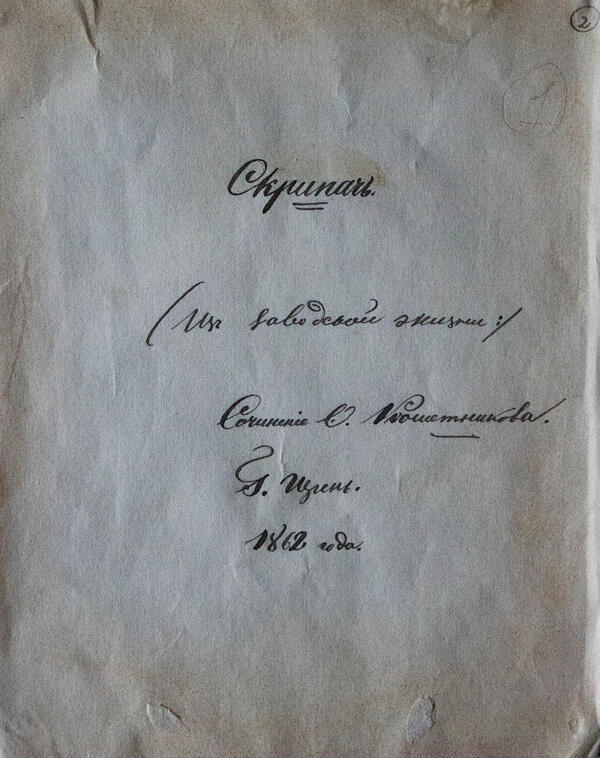 2
1
Скрипачъ.
(Изъ заводской жизни:)
Сочиненіе Ѳ. Рѣшетникова.
Г. Пермь.
1862 года.